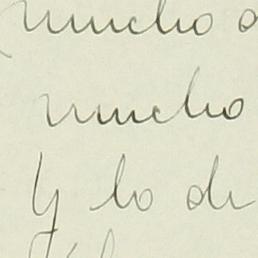 mucho
mucho
y lo de